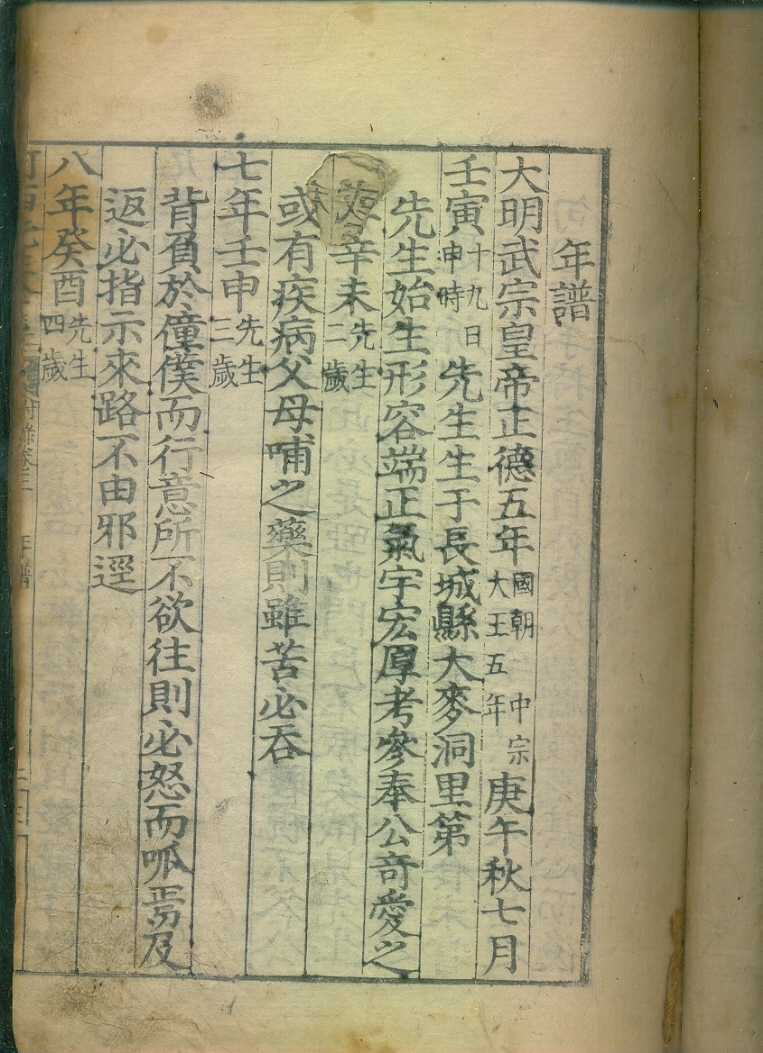 年譜
大明武宗皇帝正德五年國朝 中宗大王五年庚午秋七月
壬寅十九日申時先生生于長城縣大麥洞里第
先生始生形容端正氣宇宏厚考參奉公奇愛之
辛未先生二歲
或有疾病父母哺之藥則雖苦必吞
七年壬申先生三歲
背負於僮僕而行意所不欲往則必怒而呱焉及
返必指示來路不由邪逕
八年癸酉先生四歲
附錄卷三 年譜